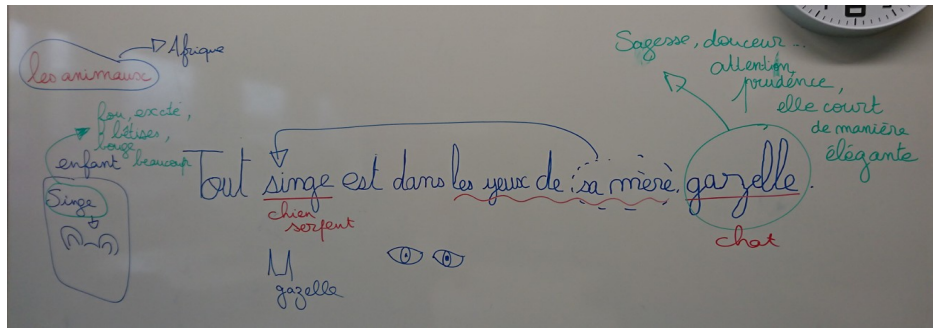 Afrique
les animaux
fou, excité,
bêtises,
bouge
beaucoup
enfant
Singe
Tout singe est dans les yeux de sa mère gazelle.
chien
serpent
chat
gazelle
Sagesse, douceur...
attention,
prudence,
elle court
de manière
élégante